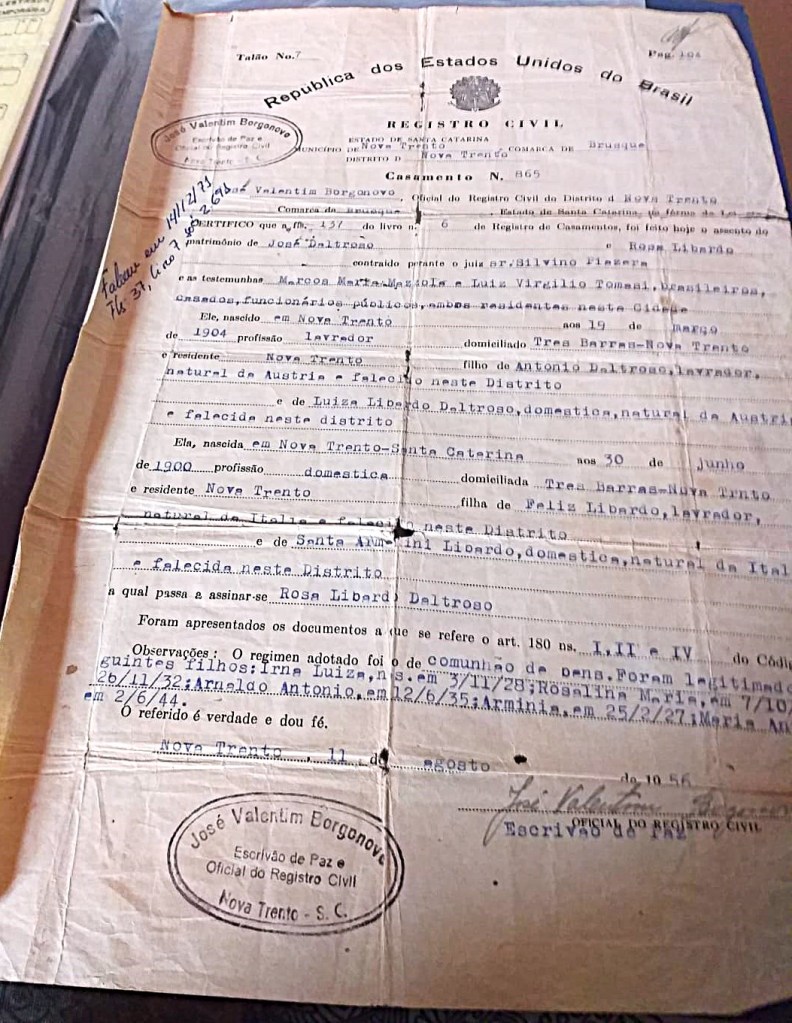 Talão No. 7
Pag. 104
Republica dos Estados Unidos do Brasil
REGISTRO CIVIL
José Valentim Borgonovo
Escrivão de Paz e
Oficial do Registro Civil
Nova Trento - S. C.
ESTADO DE SANTA CATARINA
MUNICÍPIO DE Nova Trento COMARCA DE Brusque
DISTRITO D Nova Trento
Casamento N. 865
José Valentim Borgonovo, Oficial do Registro Civil do Distrito d Nova Trento
Comarca de Brusque, Estado de Santa Catarina, na fórma da Lei
CERTIFICO que a fls. 137 do livro n. 6 de Registro de Casamentos, foi feito hoje o assento do
matrimônio de José Daltroso e Rosa Libardo
contraido perante o juiz sr. Silvino Piazera
e as testemunhas Marcos Mazzola e Luiz Virgilio Tomasi, brasileiros,
casados, funcionários públicos, ambos residentes neste Cidade
Ele, nascido em Nova Trento aos 19 de março
de 1904 profissão lavrador domiciliado Tres Barras-Nova Trento
e residente Nova Trento filho de Antonio Daltroso, lavrador,
natural da Austria e falecido neste Distrito
e de Luiza Libardo Daltroso, domestica, natural da Austri
e falecida neste distrito
Ela, nascida em Nova Trento-Santa Catarina aos 30 de junho
de 1900 profissão domestica domiciliada Tres Barras-Nova Trnto
e residente Nova Trento filha de Feliz Libardo, lavrador,
natural da Italia e falecido neste Distrito
e de Santa Libardo, domestica, natural da Ital
e falecida neste Distrito
a qual passa a assinar-se Rosa Libardo Daltroso
Foram apresentados os documentos a que se refere o art. 180 ns. I, II e IV do Códi
Observações: O regimen adotado foi o de comunhão de bens. Foram legitimado
guintes filhos: Irna Luiza, n.s. em 3/11/28; Rosalina Maria, em 7/10/
26/11/32; Arnaldo Antonio, em 12/6/35; Arminia, em 25/2/27; Maria An
em 2/6/44.
O referido é verdade e dou fé.
Nova Trento, 11 de agosto de 1956
José Valentim Borgonovo
OFICIAL DO REGISTRO CIVIL
Escrivão de Paz
José Valentim Borgonovo
Escrivão de Paz e
Oficial do Registro Civil
Nova Trento - S. C.
Faleceu em 14/12/71
Fls 37, livro 7